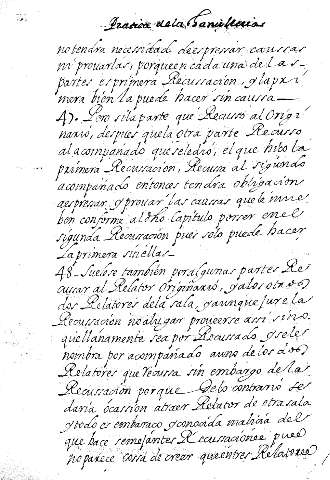 Practica de la Chancilleria
no tendra necessidad de espresar caussas
ni provarlas, porque en cada una de las
partes es primera Recussacion, y la pri
mera bien la puede hacer sin caussa
47. Pero si la parte que Recusso al Origi
nario, despues que la otra parte Recusso
al acompañado que se le dió, el que hizo la
primera Recussacion, Recusa al sigundo
acompañado entonces tendra obligacion
a espresar, y provar las caussas que le mue
ben conforme al dho Capitulo por ser en el
sigunda Recusacion pues solo puede hacer
la primera sin ellas.
48. Suelese tambien por algunas partes Re
cusar al Relator Originario, y a los otros
dos Relatores de la sala, y aunque jure la
Recussacion no a lugar proveerse assi sino
que llanamente sea por Recussado y se les
nombra por acompañado a uno de los dos
Relatores que recussa sin embargo de la
Recussacion porque de lo contrario se
daria ocassion a traer Relator de otra sala
y todo es embaraco y conocida malicia del
que hace semejantes Recusaciones pues
no parece cossa de creer que entres Relatores